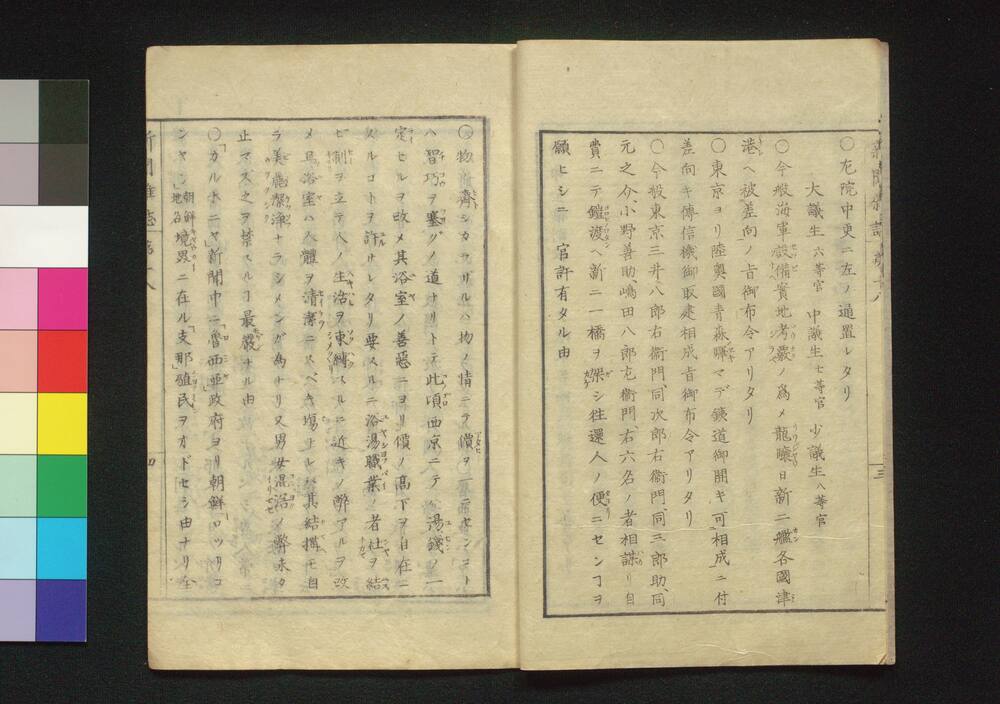 〇左院中更ニ左ノ通置レタリ
大議生 六等官 中議生 七等官 少議生 八等官
〇今般海軍設備實地考覈ノ爲メ龍驤日新二艦各國津
港ヘ被差向ノ旨御布令アリタリ
〇東京ヨリ陸奧國青森縣マデ鐵道御開キ可相成ニ付
差向キ傳信機御取建相成旨御布令アリタリ
〇今般東京三井八郎右衞門、同次郎右衞門、同三郎助、同
元之介、小野善助、嶋田八郎左衞門、右六名ノ者相謀リ自
費ニテ鎧渡ヘ新ニ一橋ヲ架シ往還人ノ便ニセンヿヲ
願ヒシニ 官許有タル由
三
〇物ノ齊シカラザルハ物ノ情ニテ價ヲ一ニセンコト
ハ智巧ヲ塞グノ道ナリトテ此頃西京ニテハ湯錢ノ一
定セルヲ改メ其浴室ノ善惡ニヨリ價ノ高下ヲ自在ニ
スルコトヲ許サレタリ要スルニ浴湯職業ノ者社ヲ結
ビ制ヲ立テ人ノ生活ヲ束縛スルニ近キノ弊アルヲ改
メ且浴室ハ人體ヲ清潔ニスベキ塲ナレバ其結搆モ自
ラ美麗潔淨ナラシメンガ爲ナリ又男女混浴ノ弊永ク
止マズ之ヲ禁スルヿ最嚴ナル由
〇「カルホニヤ」新聞中ニ「魯西亜」政府ヨリ朝鮮「ロツリコ
ンヤン」朝鮮地名境界ニ在ル「支那」殖民ヲオドセシ由ナリ全
新聞雜誌 第十八
四